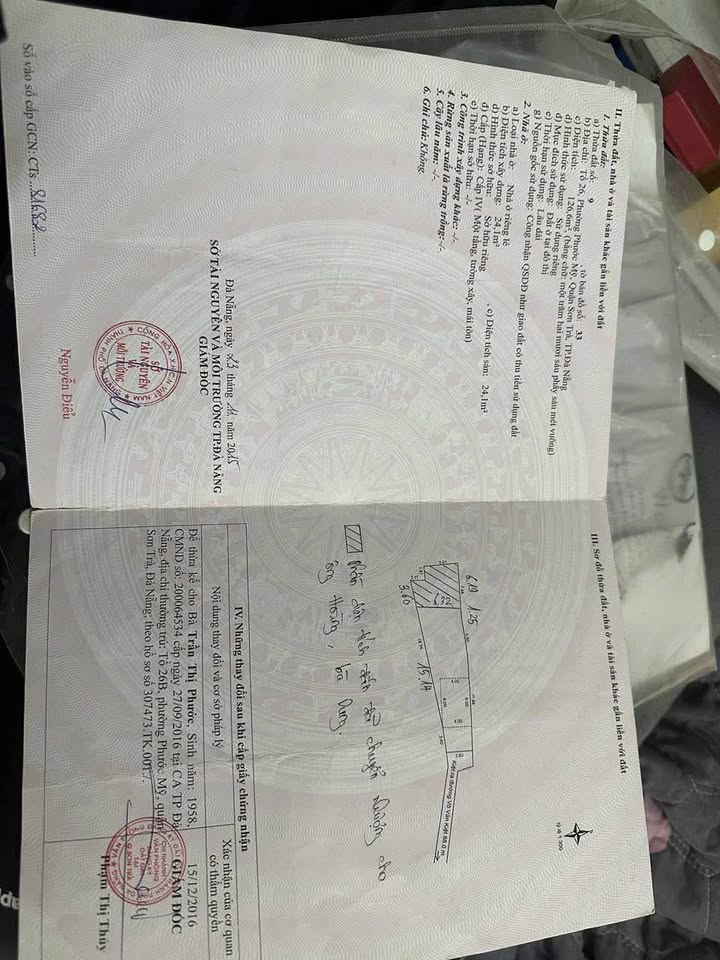 II. Thửa đất, nhà ở và tài sản khác gắn liền với đất
1. Thửa đất:
a) Thửa đất số: 9 , tờ bản đồ số: 33
b) Địa chỉ: Tổ 26, Phường Phước Mỹ, Quận Sơn Trà, TP.Đà Nẵng
c) Diện tích: 126.6m², (bằng chữ: một trăm hai mươi sáu phẩy sáu mét vuông)
d) Hình thức sử dụng: Sử dụng riêng
đ) Mục đích sử dụng: Đất ở tại đô thị
e) Thời hạn sử dụng: Lâu dài
g) Nguồn gốc sử dụng: Công nhận QSDĐ như giao đất có thu tiền sử dụng đất
2. Nhà ở:
a) Loại nhà ở: Nhà ở riêng lẻ
b) Diện tích xây dựng: 24,1m² , c) Diện tích sàn: 24,1m²
d) Hình thức sở hữu: Sở hữu riêng
đ) Cấp (Hạng): Cấp IV( Một tầng, tường xây, mái tôn)
e) Thời hạn sở hữu: -/-
3. Công trình xây dựng khác: -/-.
4. Rừng sản xuất là rừng trồng: -/-.
5. Cây lâu năm: -/-.
6. Ghi chú: Không
Đà Nẵng, ngày 23 tháng 11 năm 2015
SỞ TÀI NGUYÊN VÀ MÔI TRƯỜNG TP.ĐÀ NẴNG
GIÁM ĐỐC
SỞ
TÀI NGUYÊN
VÀ
MÔI TRƯỜNG
Nguyễn Điểu
Số vào sổ cấp GCN: CTs ...81682
III. Sơ đồ thửa đất, nhà ở và tài sản khác gắn liền với đất
TỶ LỆ 1:300
Kiệt ra đường Võ Văn Kiệt 88.0 m
6.19 1.25
15.14
3.60
Phần diện tích đất đã chuyển nhượng cho
ông Hoàng, bà
IV. Những thay đổi sau khi cấp giấy chứng nhận
Nội dung thay đổi và cơ sở pháp lý
Xác nhận của cơ quan
có thẩm quyền
Để thừa kế cho Bà Trần Thị Phước, Sinh năm: 1958,
CMND số: 200064534 cấp ngày 27/09/2016 tại CA TP Đà
Nẵng, địa chỉ thường trú: Tổ 26B, phường Phước Mỹ, quận
Sơn Trà, Đà Nẵng; theo hồ sơ số 307473.TK.001./.
15/12/2016
GIÁM ĐỐC
Phạm Thị Thủy